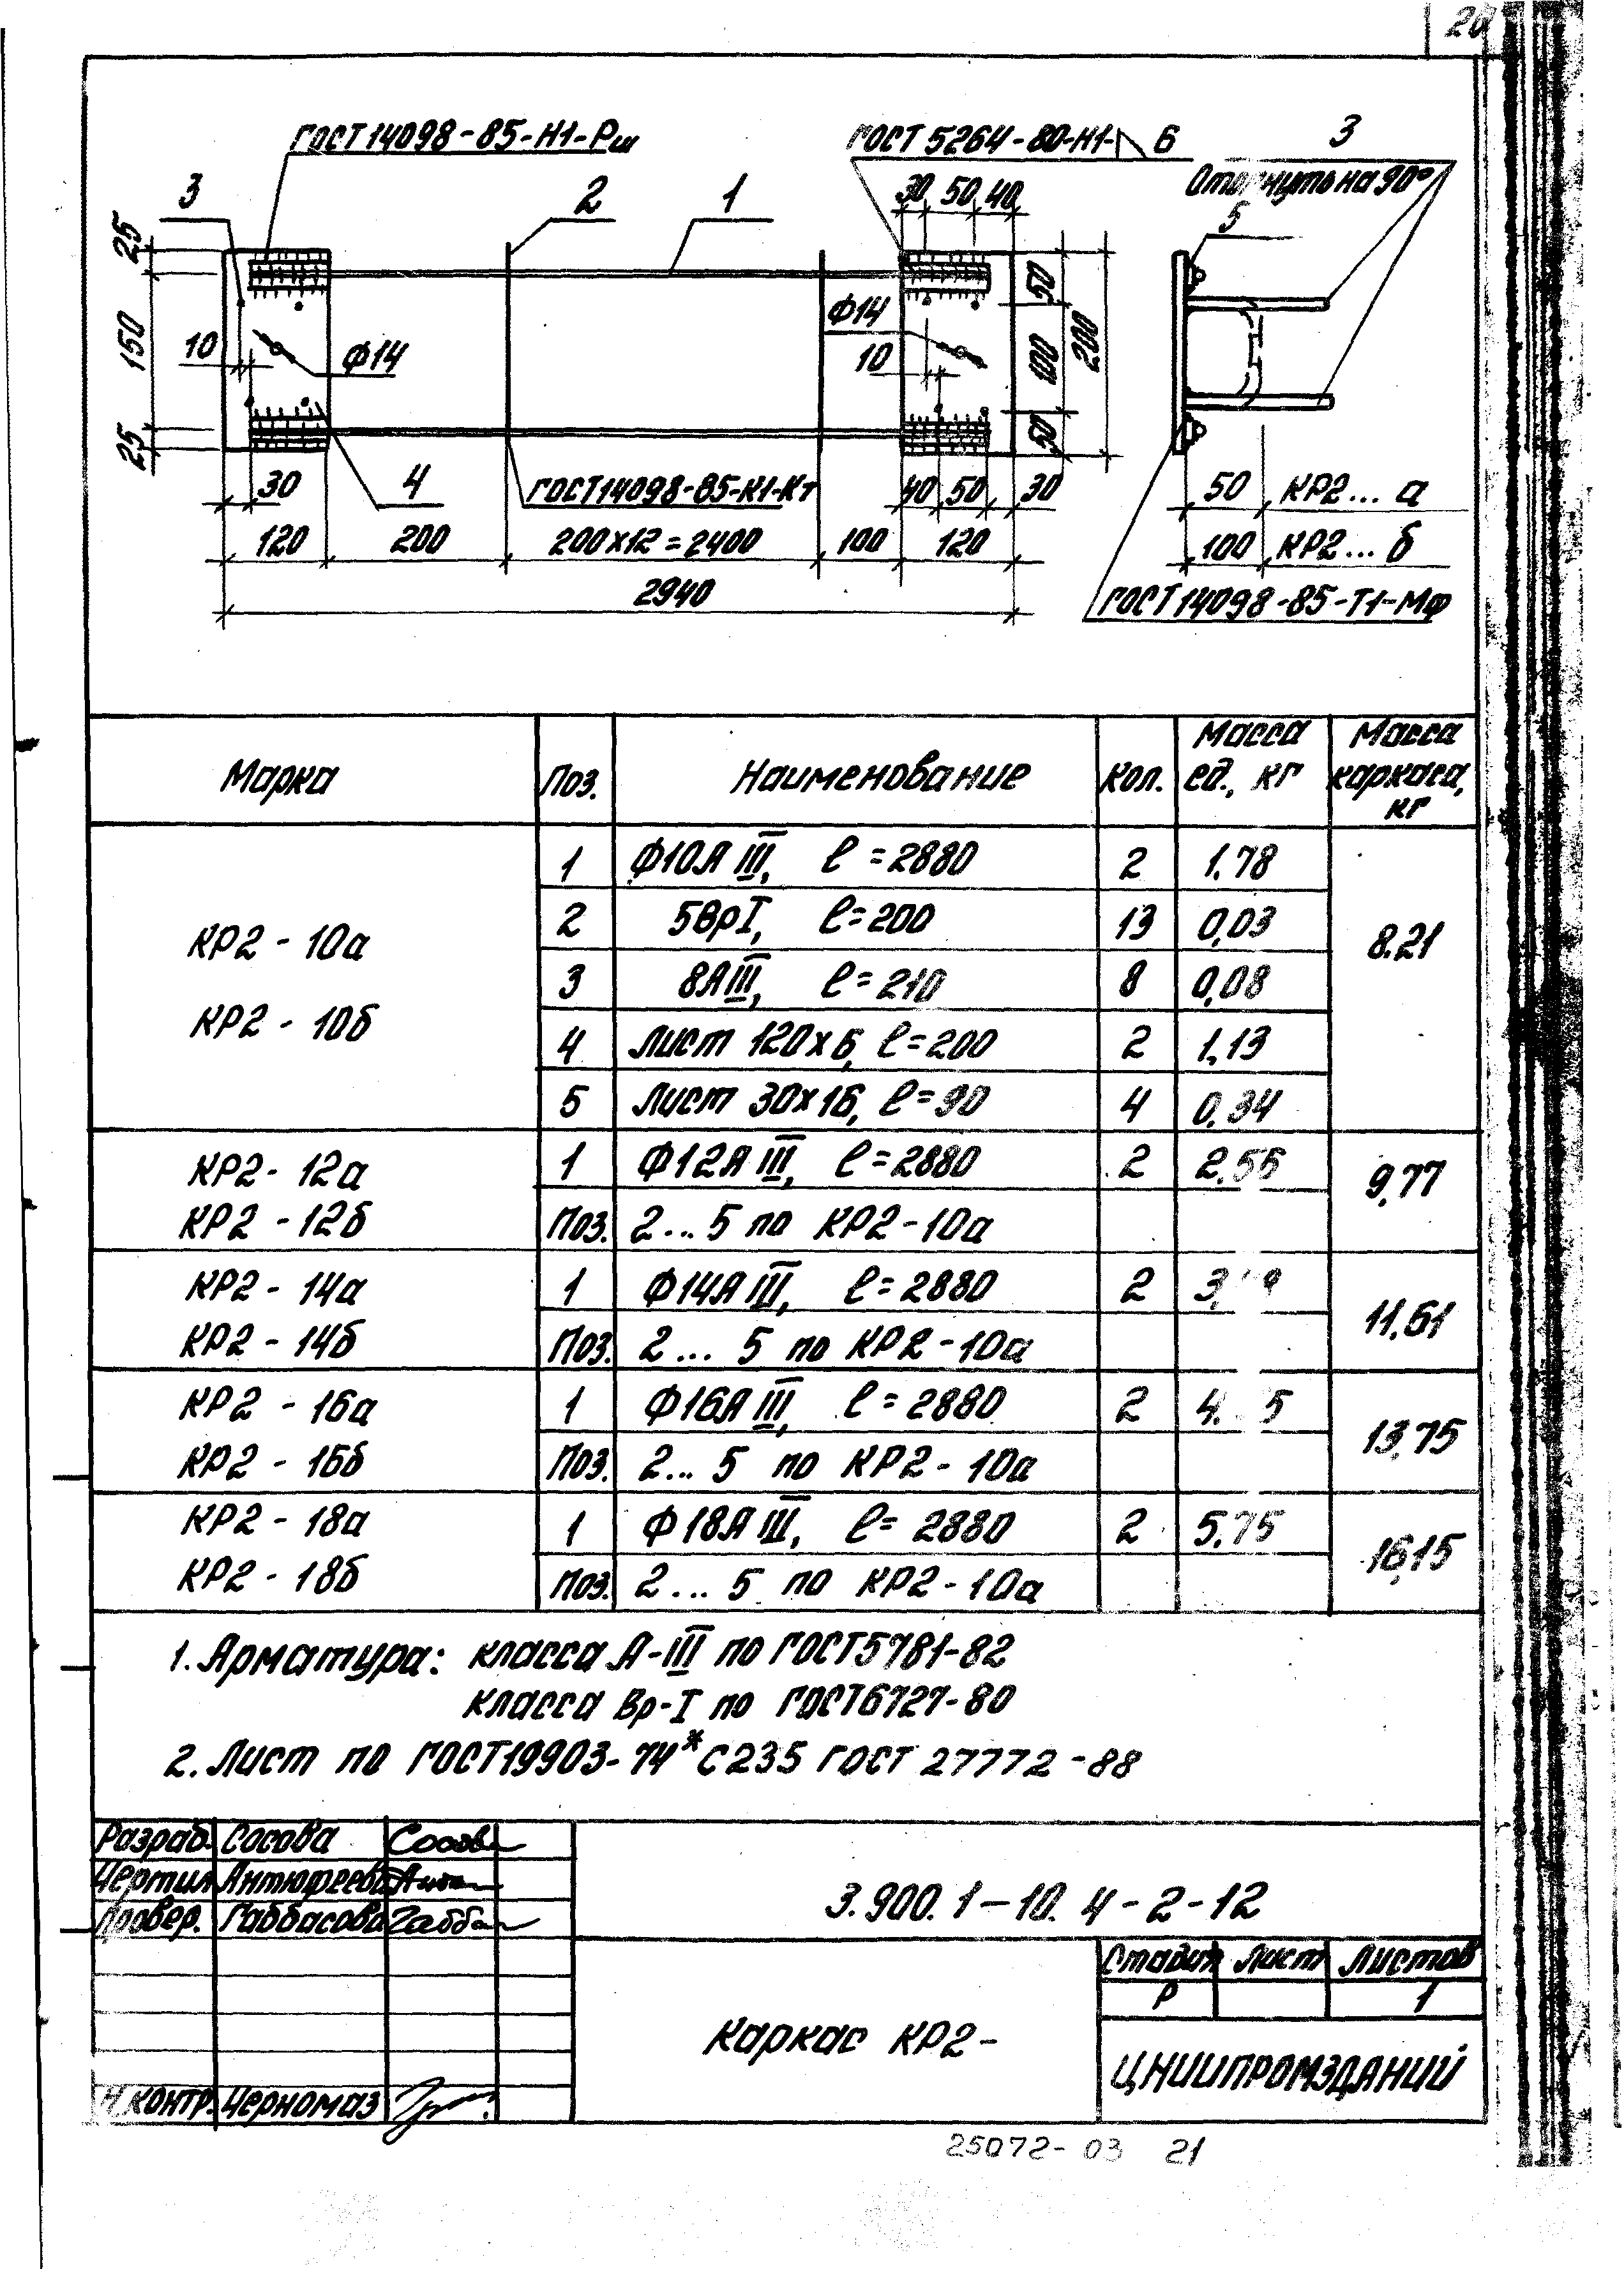 20
ГОСТ 14098-85-Н1-Рш
ГОСТ 5264-80-Н1- 6
3
Отогнуть на 90°
3
2
1
30 50 40
5
25
150
25
10
Ф14
Ф14
10
50
100
50
200
30
4
ГОСТ 14098-85-К1-Кт
40 50 30
50 КР2... а
120
200
200x12=2400
100
120
100 КР2... б
2940
ГОСТ 14098-85-Т1-Мф
Марка Поз. Наименование Кол. Масса ед., кг Масса каркаса, кг
КР2 - 10а
КР2 - 10б
1 Ф10А III, ℓ=2880 2 1,78
2 5ВрI, ℓ=200 13 0,03
3 8АIII, ℓ=210 8 0,08
4 Лист 120х6, ℓ=200 2 1,13
5 Лист 30х16, ℓ=90 4 0,34
8,21
КР2 - 12а 1 Ф12А III, ℓ=2880 2 2,56
КР2 - 12б Поз. 2...5 по КР2-10а
9,77
КР2 - 14а 1 Ф14А III, ℓ=2880 2
КР2 - 14б Поз. 2...5 по КР2-10а
11,61
КР2 - 16а 1 Ф16А III, ℓ=2880 2
КР2 - 16б Поз. 2...5 по КР2-10а
13,75
КР2 - 18а 1 Ф18А III, ℓ=2880 2 5,75
КР2 - 18б Поз. 2...5 по КР2-10а
16,15
1. Арматура: класса А-III по ГОСТ 5781-82
класса Вр-I по ГОСТ 6727-80
2. Лист по ГОСТ 19903-74* С235 ГОСТ 27772-88
Разраб. Сосова
Чертил Антюфеева
Провер. Габбасова
Н.контр. Черномаз
3.900.1-10.4-2-12
Каркас КР2-
Стадия Лист Листов
Р 1
ЦНИИПРОМЗДАНИЙ
25072-03 21